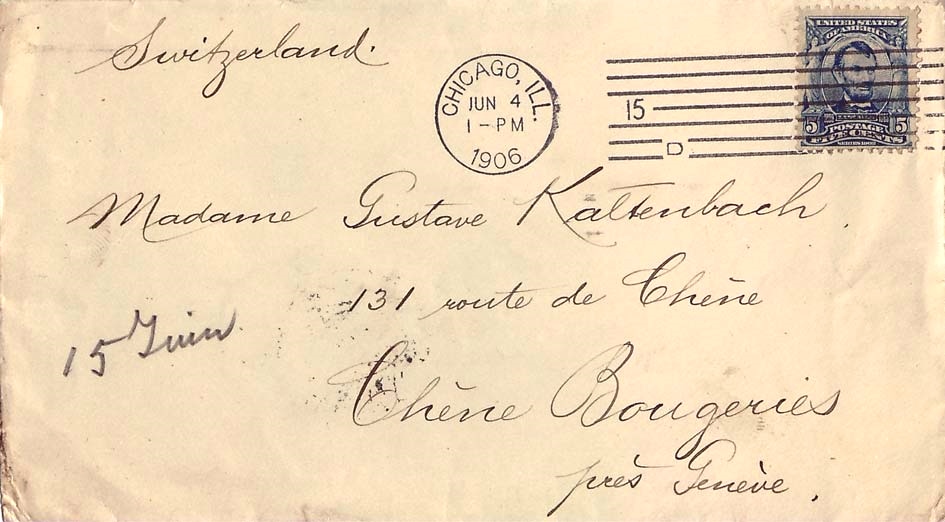 Switzerland.
CHICAGO, ILL.
JUN 4
1-PM
1906
15
D
UNITED STATES
OF AMERICA
5 POSTAGE 5
FIVE CENTS
SERIES 1902
Madame Gustave Kaltenbach
131 route de Chêne
15 Juin
Chêne Bougeries
près Genève.